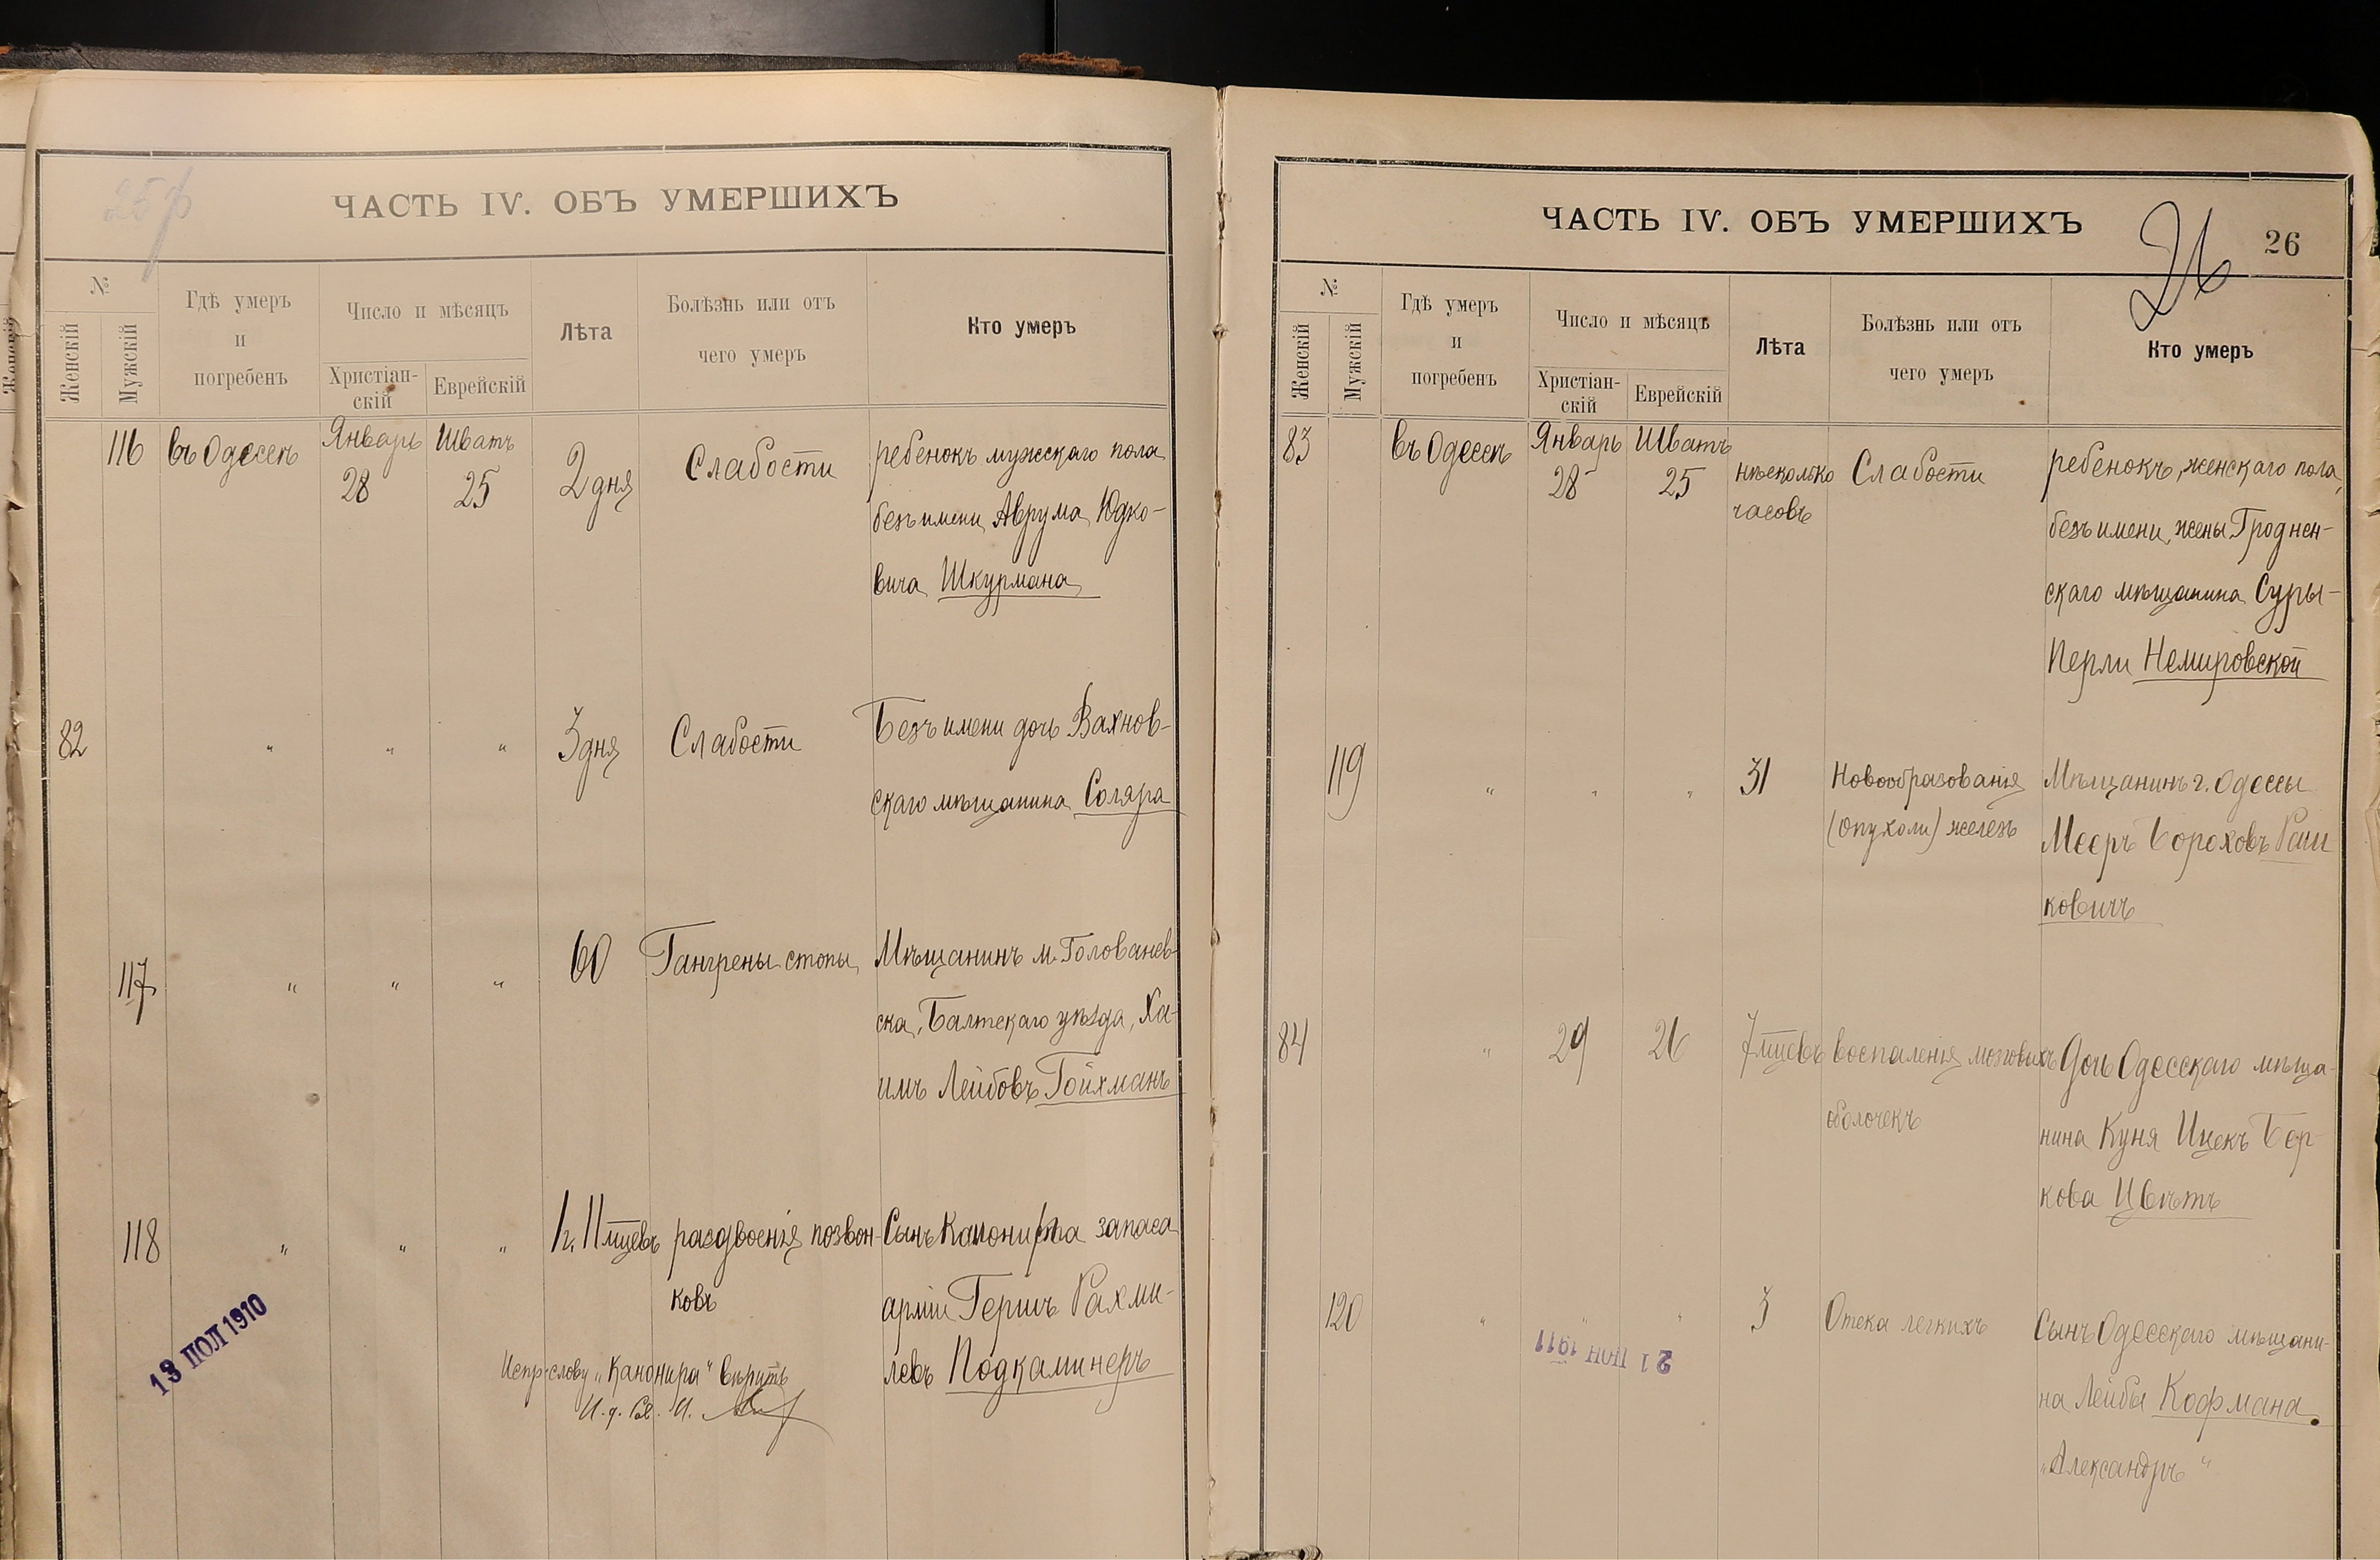 ЧАСТЬ IV. ОБЪ УМЕРШИХЪ
№
Женскій
Мужскій
Гдѣ умеръ
и
погребенъ
Число и мѣсяцъ
Христіан-
скій
Еврейскій
Лѣта
Болѣзнь или отъ
чего умеръ
Кто умеръ
116 въ Одессѣ Январь 28 Шватъ 25 2 дня Слабости ребенокъ мужскаго пола
безъ имени Аврума Юдко-
вича Шкурмана
82 " " " 3 дня Слабости Безъ имени дочь Вахнов-
скаго мѣщанина Соляра
117 " " " 60 Гангрены стопы Мѣщанинъ м. Голованев-
ска, Балтскаго уѣзда, Ха-
имъ Лейбовъ Гойхманъ
118 " " " 1 г. 11 мцевъ раздвоенія позвон- Сынъ Канонира запаса
ковъ арміи Гершъ Рахми-
левъ Подкаминеръ
Испр. слову „Канонира" вѣрить
И. д.
13 ПОЛ 1910
ЧАСТЬ IV. ОБЪ УМЕРШИХЪ
26
26
№
Женскій
Мужскій
Гдѣ умеръ
и
погребенъ
Число и мѣсяцъ
Христіан-
скій
Еврейскій
Лѣта
Болѣзнь или отъ
чего умеръ
Кто умеръ
83 въ Одессѣ Январь 28 Шватъ 25 нѣсколько часовъ Слабости ребенокъ женскаго пола,
безъ имени, жены Гроднен-
скаго мѣщанина Суры-
Перли Немировской
119 " " " 31 Новообразованія Мѣщанинъ г. Одессы
(опухоли) железъ Мееръ Бороховъ Раш
ковичъ
84 " 29 26 7 мцевъ воспаленія мозговыхъ Дочь Одесскаго мѣща-
оболочекъ нина Куня Ицекъ Бер-
кова Цвѣтъ
120 " " " 3 Отека легкихъ Сынъ Одесскаго мѣщани-
на Лейбы Кофмана.
„Александръ"
21 ІЮН 1911